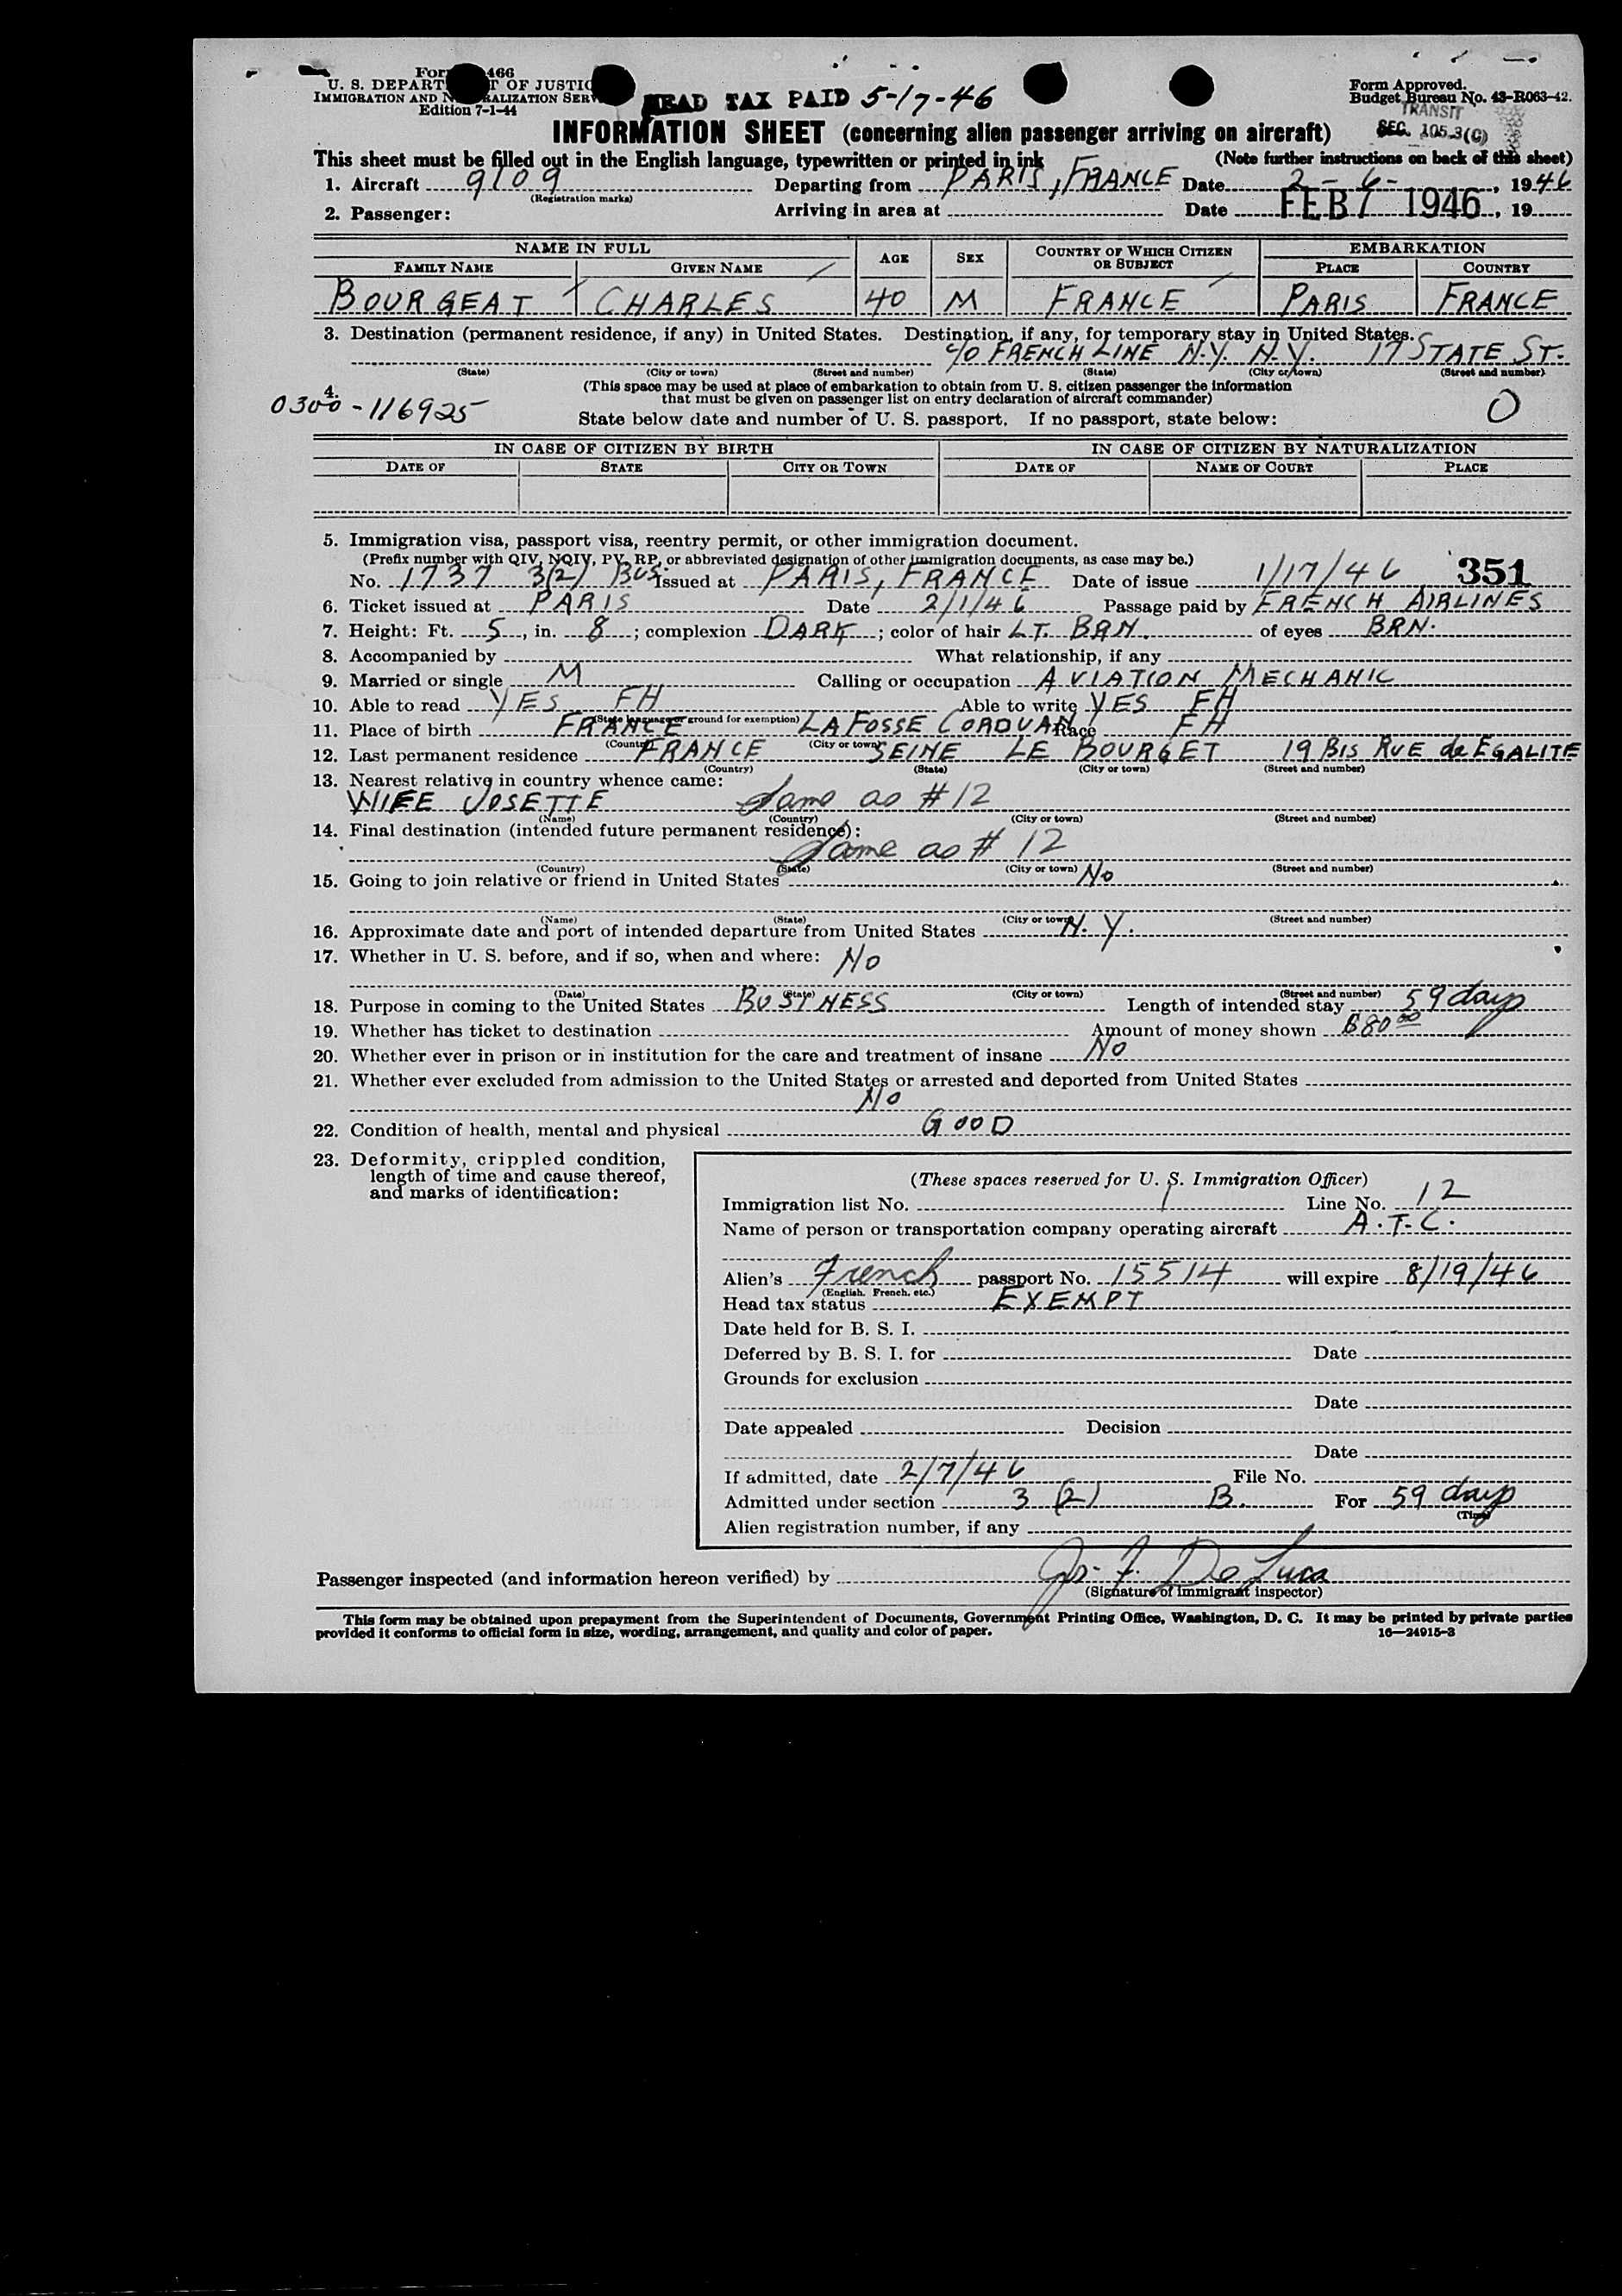 Form 466
U. S. DEPART T OF JUSTIC
IMMIGRATION AND N RALIZATION SERV
Edition 7-1-44
HEAD TAX PAID 5-17-46
Form Approved.
Budget Bureau No. 43-R063-42.
TRANSIT
SEC. 105.3(C)
INFORMATION SHEET (concerning alien passenger arriving on aircraft)
This sheet must be filled out in the English language, typewritten or printed in ink (Note further instructions on back of this sheet)
1. Aircraft 9109 Departing from PARIS, FRANCE Date 2-6-, 1946
(Registration marks)
2. Passenger: Arriving in area at Date FEB 7 1946, 19
NAME IN FULL AGE SEX COUNTRY OF WHICH CITIZEN OR SUBJECT EMBARKATION
FAMILY NAME GIVEN NAME PLACE COUNTRY
BOURGEAT CHARLES 40 M FRANCE PARIS FRANCE
3. Destination (permanent residence, if any) in United States. Destination, if any, for temporary stay in United States.
c/o FRENCH LINE N.Y. N.Y. 17 STATE ST.
(State) (City or town) (Street and number) (State) (City or town) (Street and number)
4. (This space may be used at place of embarkation to obtain from U. S. citizen passenger the information
that must be given on passenger list on entry declaration of aircraft commander)
0300-116925 State below date and number of U. S. passport. If no passport, state below: O
IN CASE OF CITIZEN BY BIRTH IN CASE OF CITIZEN BY NATURALIZATION
DATE OF STATE CITY OR TOWN DATE OF NAME OF COURT PLACE
5. Immigration visa, passport visa, reentry permit, or other immigration document.
(Prefix number with QIV, NQIV, PV, RP, or abbreviated designation of other immigration documents, as case may be.)
No. 1737 3(2) BUS. Issued at PARIS, FRANCE Date of issue 1/17/46 351
6. Ticket issued at PARIS Date 2/1/46 Passage paid by FRENCH AIRLINES
7. Height: Ft. 5, in. 8; complexion DARK; color of hair LT. BRN. of eyes BRN.
8. Accompanied by What relationship, if any
9. Married or single M Calling or occupation AVIATION MECHANIC
10. Able to read YES FH Able to write YES FH
(State language or ground for exemption)
11. Place of birth FRANCE LA FOSSE CORDUAN Race FH
(Country) (City or town)
12. Last permanent residence FRANCE SEINE LE BOURGET 19 BIS RUE de EGALITE
(Country) (State) (City or town) (Street and number)
13. Nearest relative in country whence came:
WIFE JOSETTE Same as #12
(Name) (Country) (City or town) (Street and number)
14. Final destination (intended future permanent residence):
Same as # 12
(Country) (State) (City or town) (Street and number)
15. Going to join relative or friend in United States No
(Name) (State) (City or town) (Street and number)
16. Approximate date and port of intended departure from United States N.Y.
17. Whether in U. S. before, and if so, when and where: No
(Date) (State) (City or town) (Street and number)
18. Purpose in coming to the United States BUSINESS Length of intended stay 59 days
19. Whether has ticket to destination Amount of money shown $80.00
20. Whether ever in prison or in institution for the care and treatment of insane No
21. Whether ever excluded from admission to the United States or arrested and deported from United States
No
22. Condition of health, mental and physical GOOD
23. Deformity, crippled condition,
length of time and cause thereof,
and marks of identification:
(These spaces reserved for U. S. Immigration Officer)
Immigration list No. 1 Line No. 12
Name of person or transportation company operating aircraft A.T.C.
Alien's French passport No. 15514 will expire 8/19/46
(English, French, etc.)
Head tax status EXEMPT
Date held for B. S. I.
Deferred by B. S. I. for Date
Grounds for exclusion
Date
Date appealed Decision
Date
If admitted, date 2/7/46 File No.
Admitted under section 3 (2) B. For 59 days
(Time)
Alien registration number, if any
Passenger inspected (and information hereon verified) by Jos. F. De Luca
(Signature of immigrant inspector)
This form may be obtained upon prepayment from the Superintendent of Documents, Government Printing Office, Washington, D. C. It may be printed by private parties
provided it conforms to official form in size, wording, arrangement, and quality and color of paper. 16—24915-3